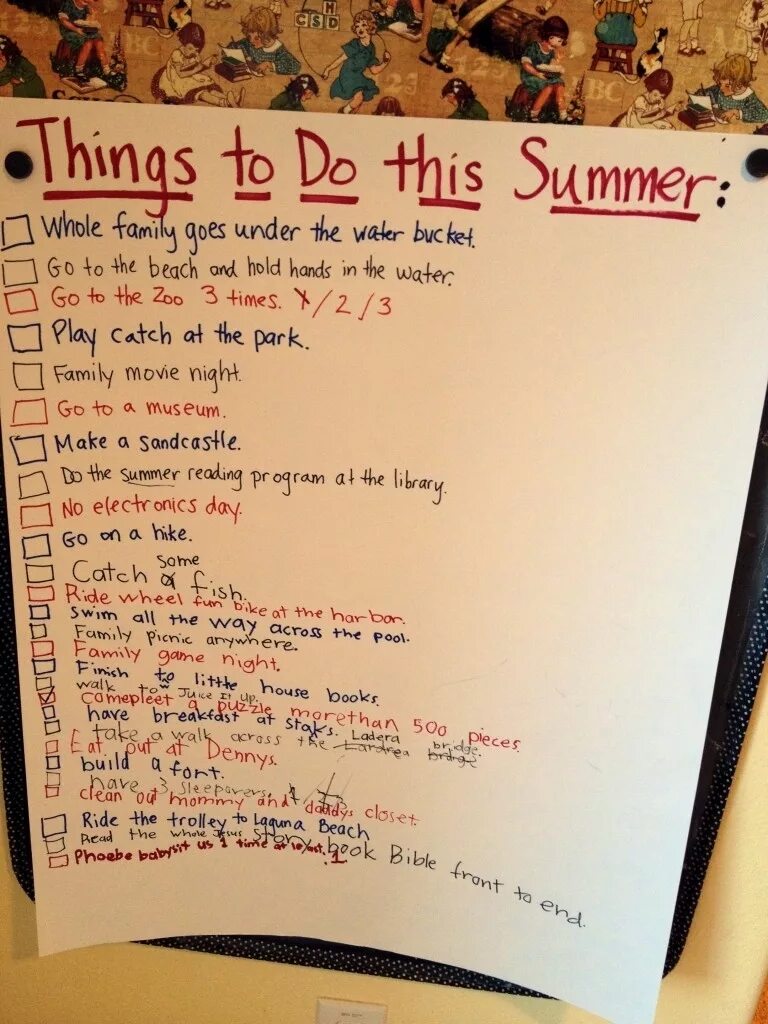 H
C S D
ABC
123
BC
Things to Do this Summer:
Whole family goes under the water bucket.
Go to the beach and hold hands in the water.
Go to the Zoo 3 times. 1/2/3
Play catch at the park.
Family movie night.
Go to a museum.
Make a sandcastle.
Do the summer reading program at the library.
No electronics day.
Go on a hike.
Catch a some fish.
Ride wheel fun bike at the harbor.
Swim all the way across the pool.
Family picnic anywhere.
Family game night.
Finish to little house books.
walk to Juice It Up.
comepleet a puzzle morethan 500 pieces.
have breakfast at staks.
take a walk across the Ladera bridge.
Eat out at Dennys.
build a fort.
have 3 sleepovers. 1/
clean out mommy and daddys closet.
Ride the trolley to Laguna Beach
Read the whole Jesus story book Bible front to end.
Phoebe babysit us 1 time at least. 1